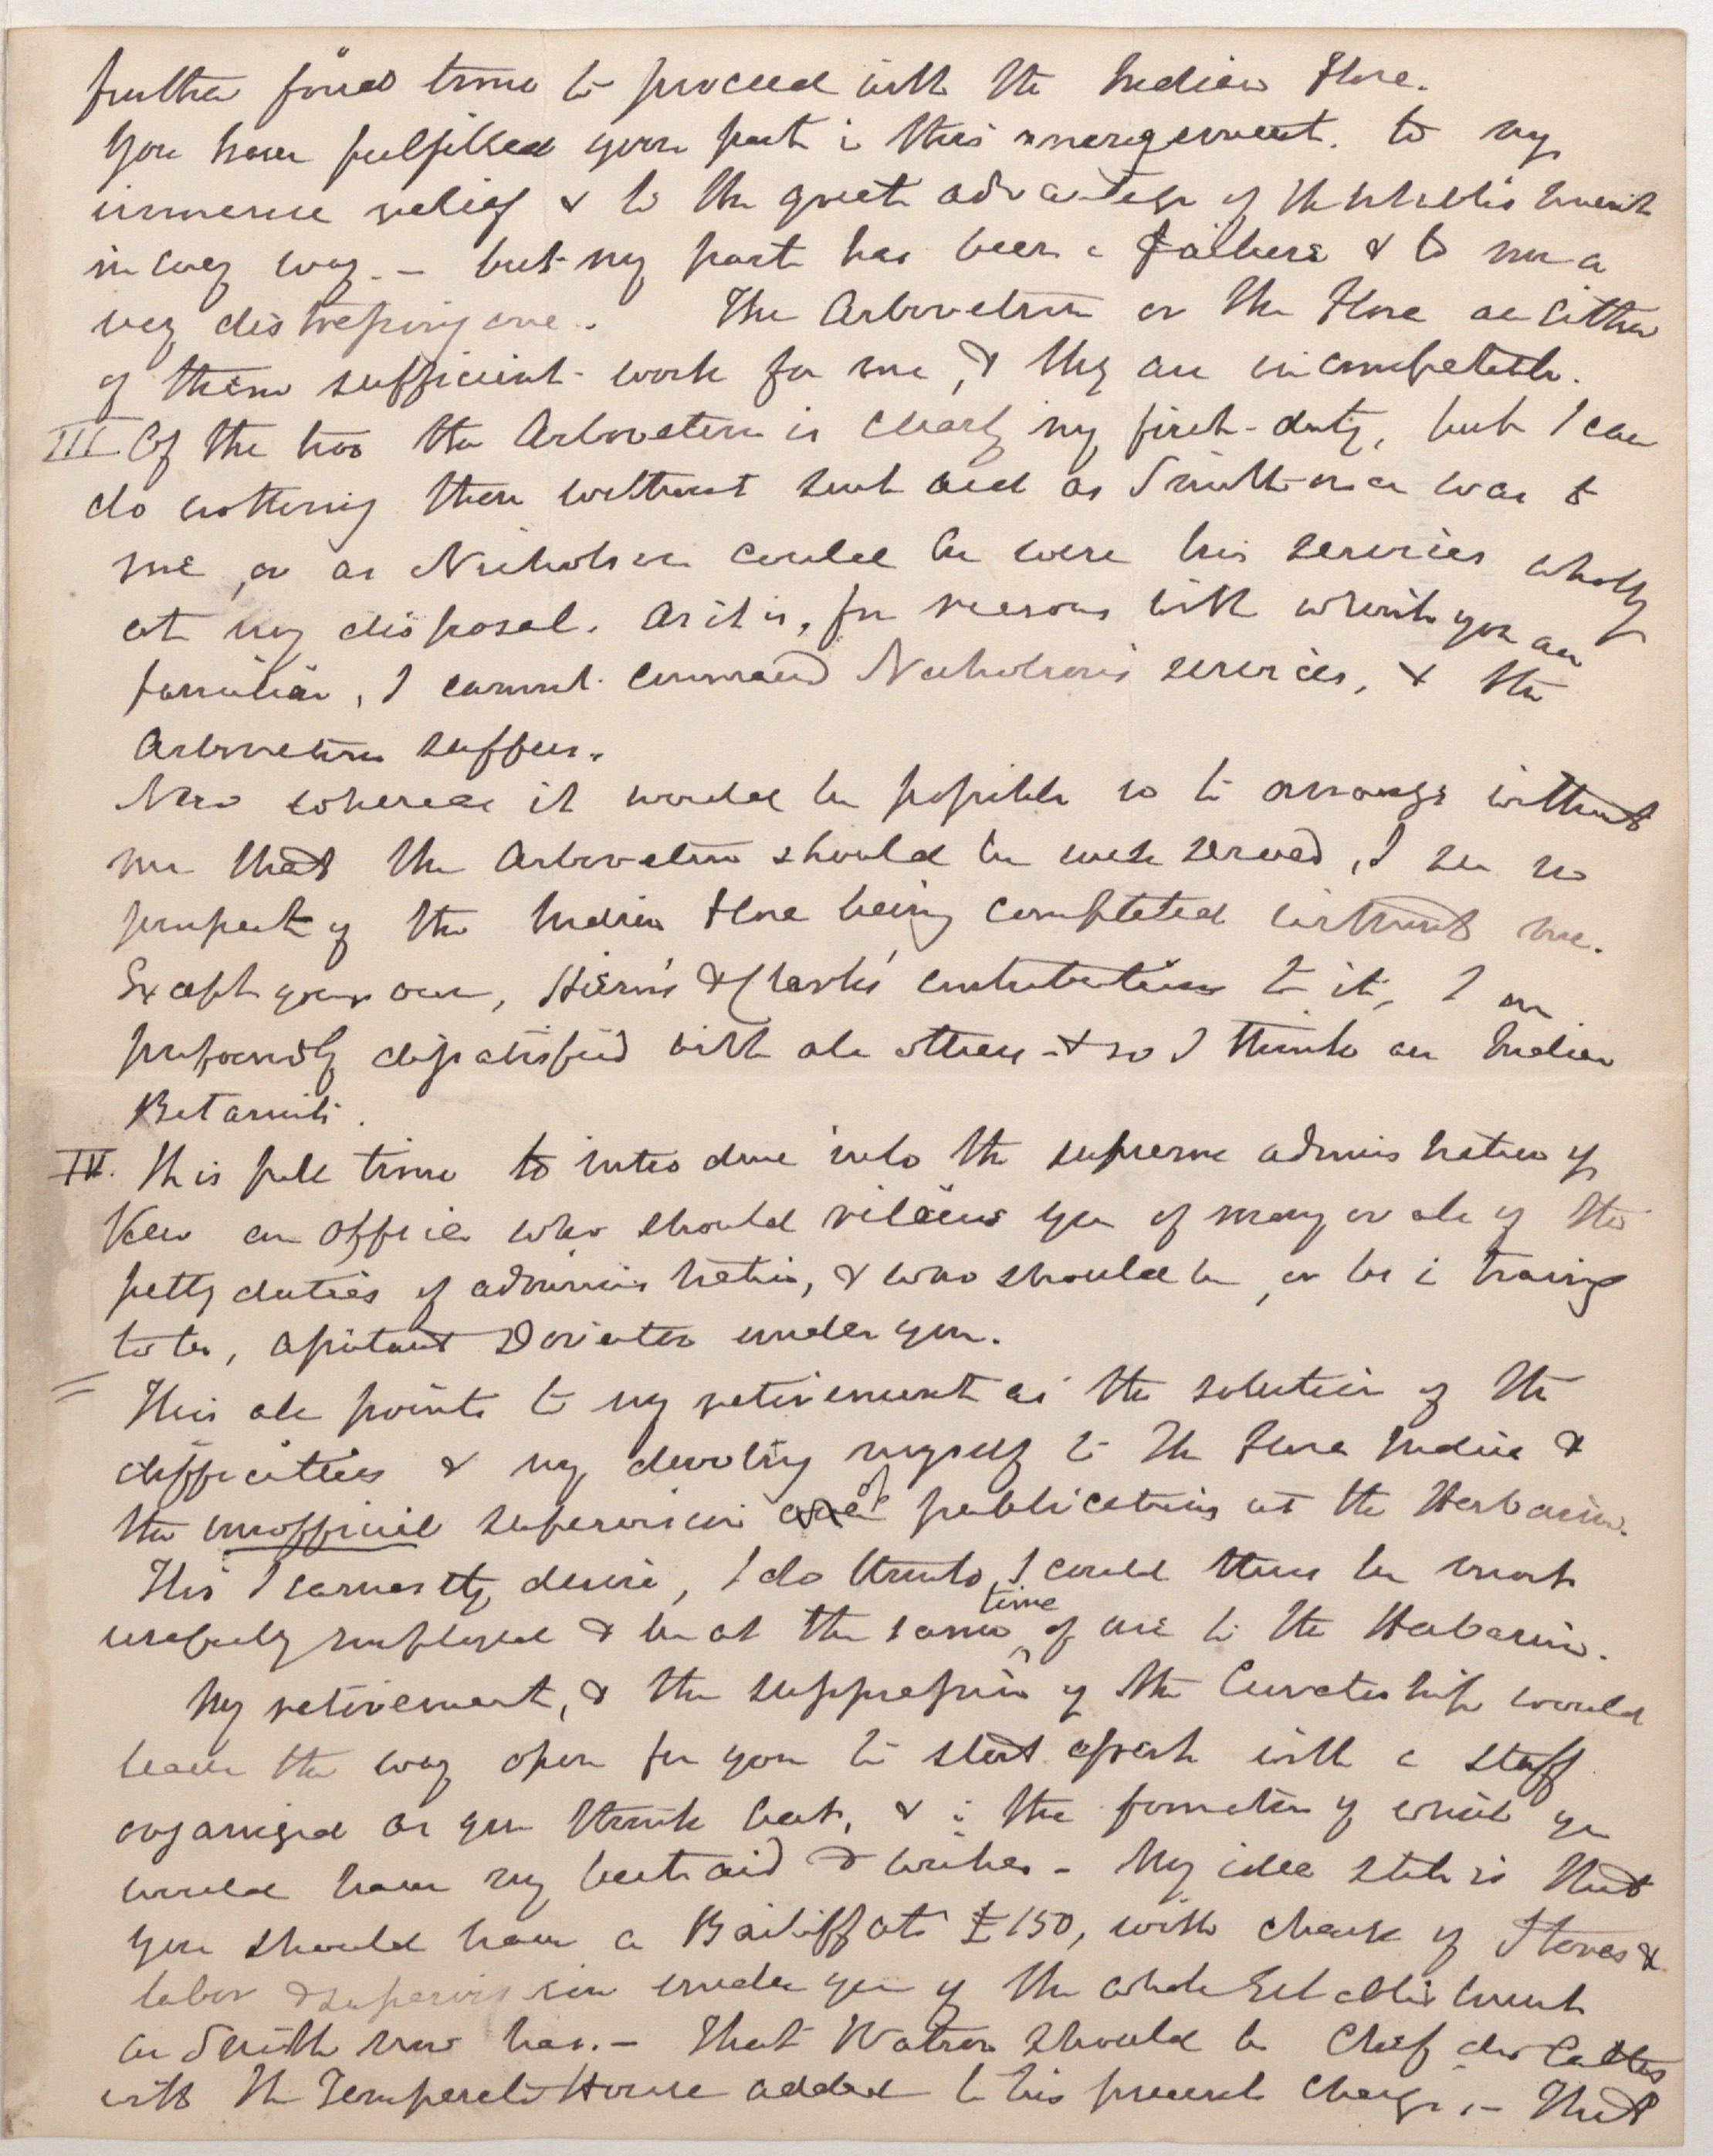 further found time to proceed with the Indian Flora.
You have fulfilled your part in this arrangement. to my
immense relief & to the great advantage of the establishment
in every way. – but my part has been a failure & to me a
very distressing one. The Arboretum or the Flora are either
of them sufficient work for me, & they are incompatible.
III Of the two the Arboretum is clearly my first duty, but I can
do nothing there without such aid as Smith once was to
me, or as Nicholson could be were his services wholly
at my disposal. As it is, for reasons with which you are
familiar, I cannot command Nicholson's services, & the
Arboretum suffers.
Now whereas it would be possible so to arrange without
me that the Arboretum should be well served, I see no
prospect of the Indian Flora being completed without me.
Except your own, Hiern's & Clarke's contributions to it, I am
profoundly dissatisfied with all others - & so I think are Indian
Botanists.
IV. It is full time to introduce into the supreme administration of
Kew an officer who should relieve you of many or all of the
petty duties of administration, & who should be, or be in training
to be, assistant Director under you.
This all points to my retirement as the solution of the
difficulties & my devoting myself to the Flora Indica &
the unofficial supervision of publications at the Herbarium.
This I earnestly desire, I do think I could thus be most
usefully employed & be at the same time of use to the Herbarium.
My retirement, & the suppression of the Curatorship would
leave the way open for you to start afresh with a staff
organized as you think best, & in the formation of which you
would have my best aid & wishes - My idea still is that
you should have a Bailiff at £150, with charge of Stores &
labor & supervision under you of the whole Establishment
as Smith now has. – That Watson should be Chef des Cultes
with the Temperate House added to his present charge, – That